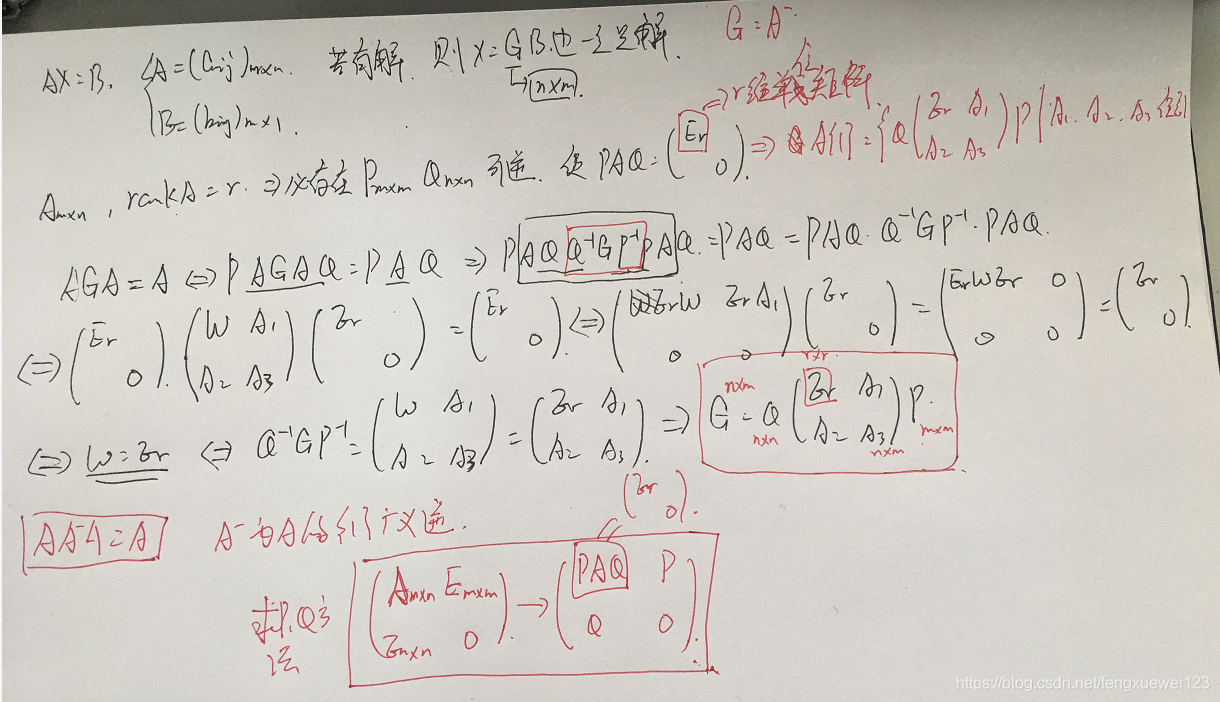 G = A⁻
AX=B. { A=(aij)m×n. 若有解, 则 X=GB 也一定是解.
B=(bij)m×1. n×m
⇒ r级单位矩阵.
Am×n, rankA=r. ⇒ 必存在 Pm×m Qn×n 可逆. 使 PAQ=(Er 0). ⇒ A{1}={Q(Er A1 A2 A3)P | A1. A2. A3 任意}
AGA=A ⇔ PAGAQ=PAQ ⇒ PAQQ⁻¹GP⁻¹PAQ.=PAQ=PAQ·Q⁻¹GP⁻¹·PAQ.
⇔ (Er 0).(W A1 A2 A3)(Er 0)=(Er 0). ⇔ (ErW ErA1 0 0)(Er 0)=(ErWEr 0 0 0)=(Er 0).
⇔ W=Er ⇔ Q⁻¹GP⁻¹=(W A1 A2 A3)=(Er A1 A2 A3). ⇒ G=Q(Er A1 A2 A3)P.
n×m n×n r×r n×m m×m
AA⁻A=A A⁻为A的{1}广义逆.
(Er 0).
求P,Q方法 (Am×n Em×m En×n 0). → (PAQ P Q 0).
https://blog.csdn.net/fengxuewei123